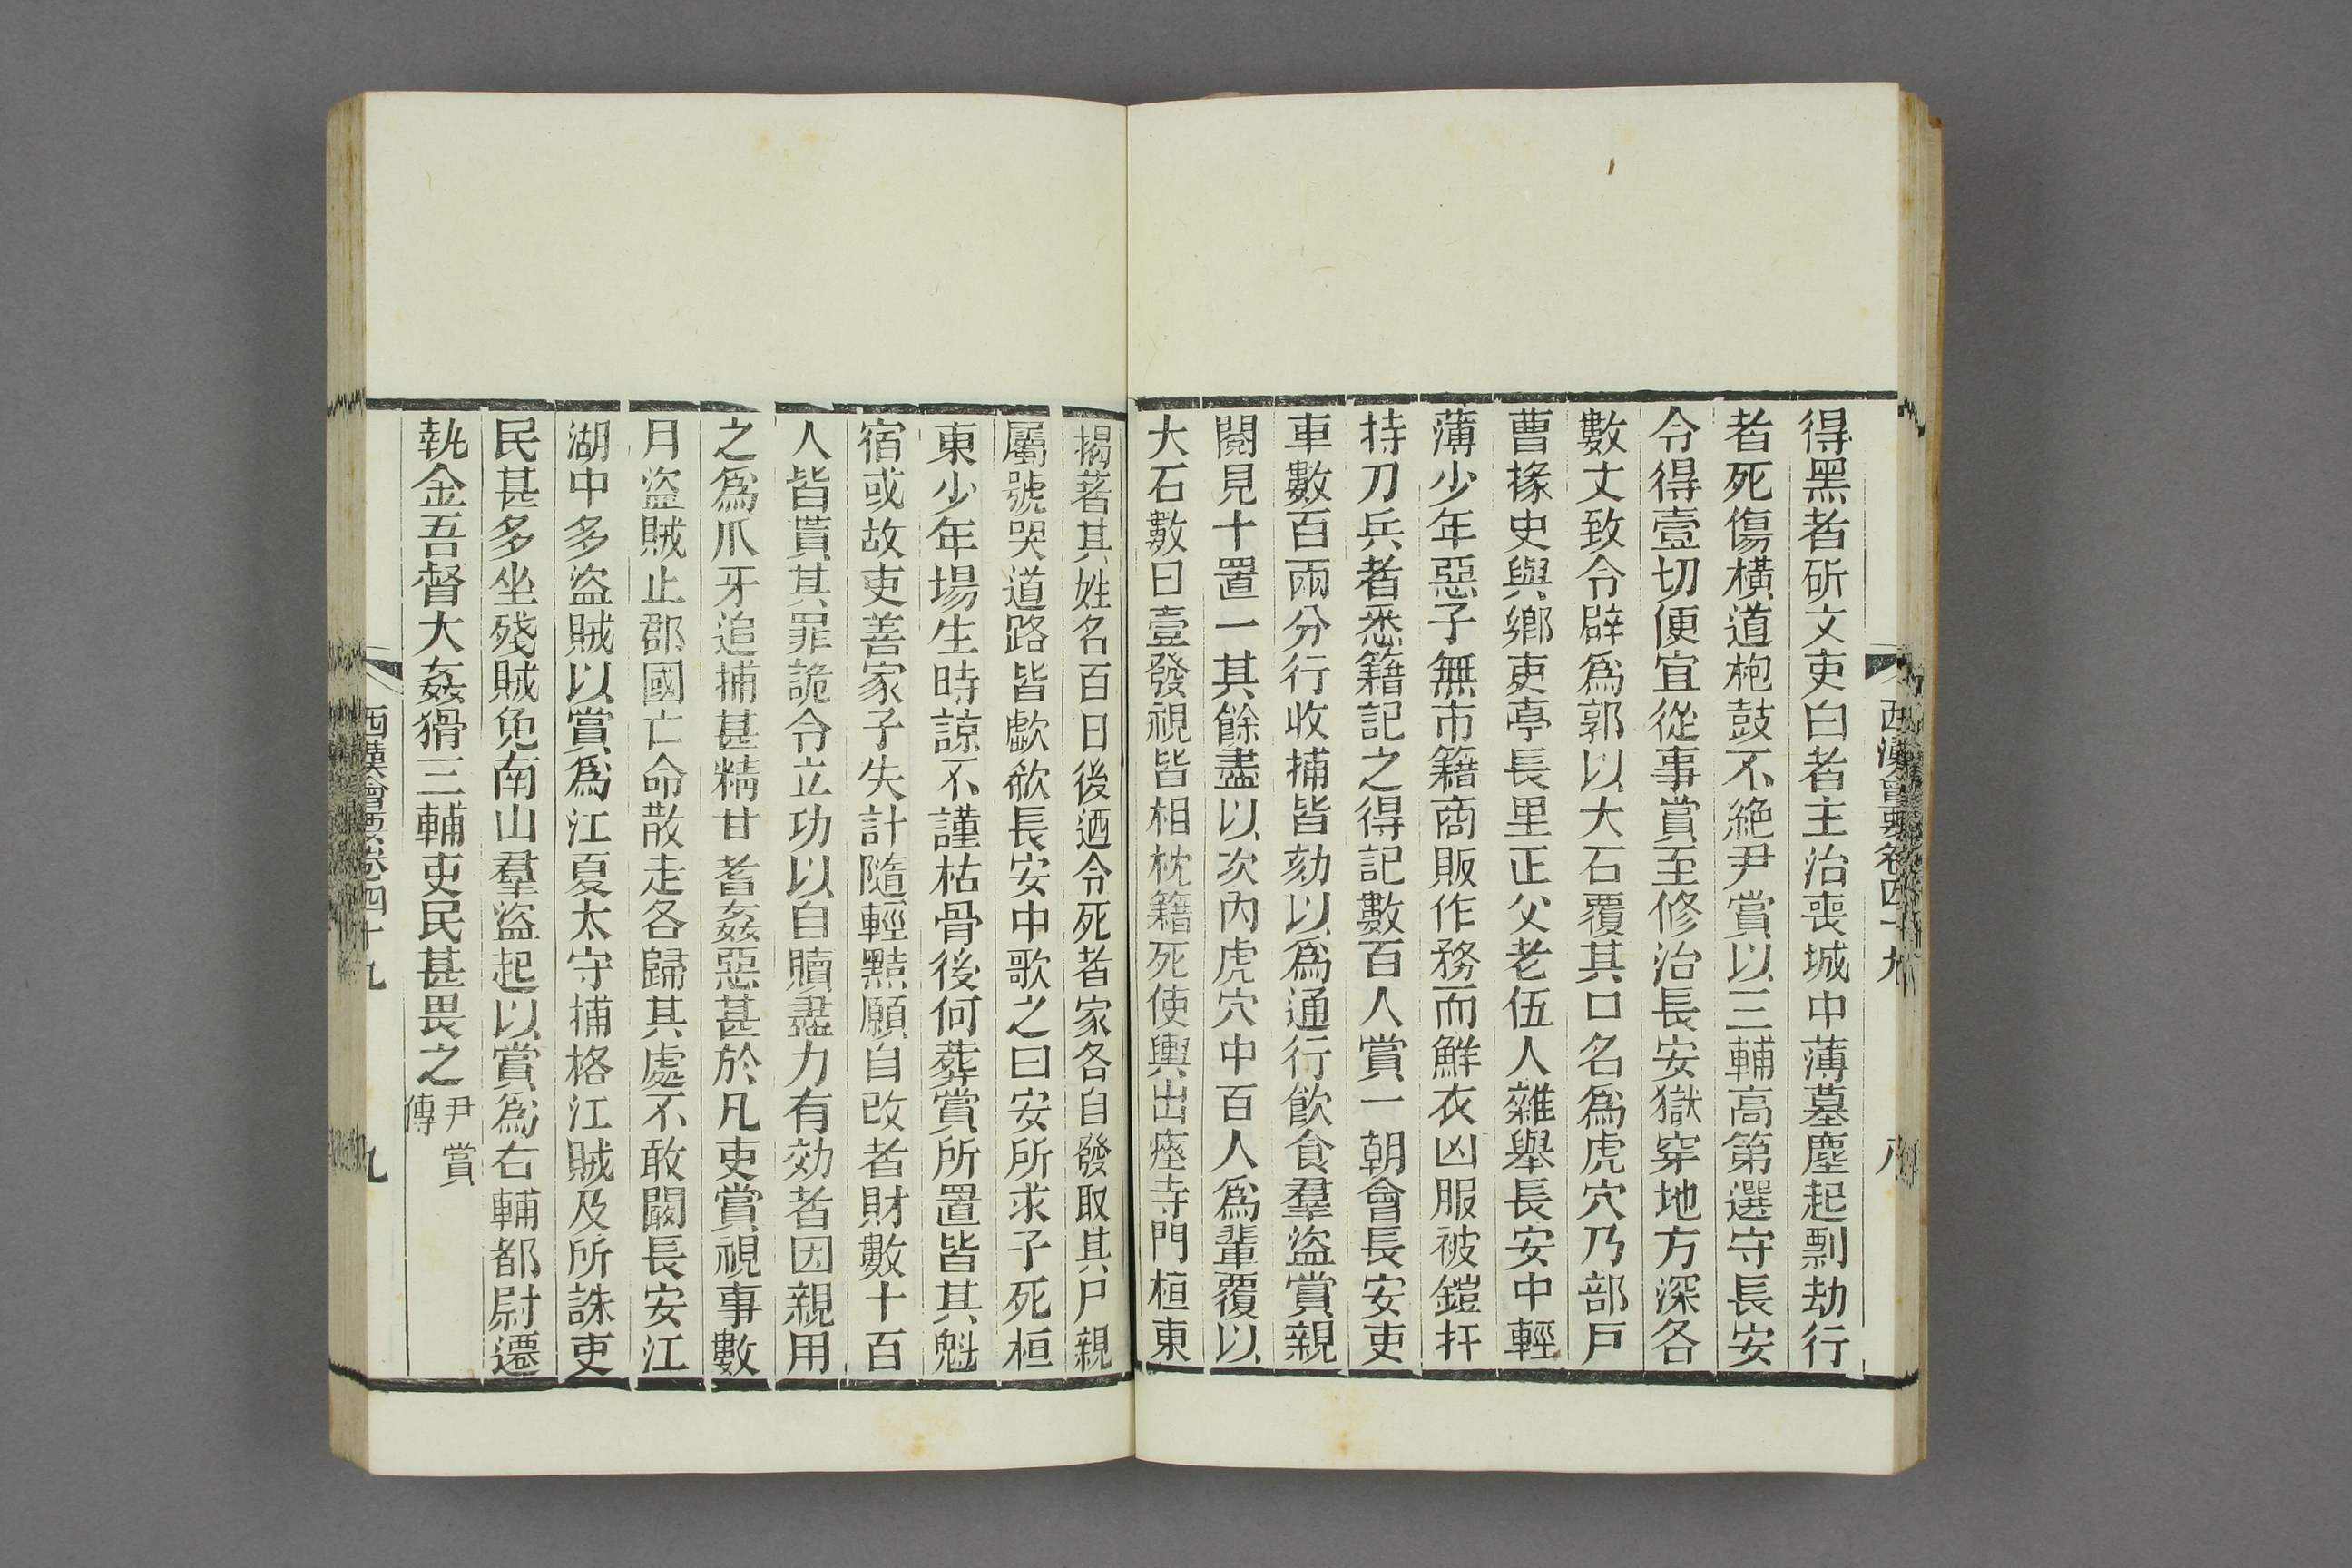 西漢會要卷四十九
八
得黑者斫文吏白者主治喪城中薄墓塵起剽劫行
者死傷橫道枹鼓不絕尹賞以三輔高第選守長安
令得壹切便宜從事賞至修治長安獄穿地方深各
數丈致令辟爲郭以大石覆其口名爲虎穴乃部戶
曹掾史與鄉吏亭長里正父老伍人雜舉長安中輕
薄少年惡子無市籍商販作務而鮮衣凶服被鎧扞
持刀兵者悉籍記之得記數百人賞一朝會長安吏
車數百兩分行收捕皆劾以爲通行飲食羣盜賞親
閱見十置一其餘盡以次內虎穴中百人爲輩覆以
大石數日壹發視皆相枕籍死使輿出瘞寺門桓東
揭著其姓名百日後迺令死者家各自發取其尸親
屬號哭道路皆歔欷長安中歌之曰安所求子死桓
東少年場生時諒不謹枯骨後何葬賞所置皆其魁
宿或故吏善家子失計隨輕黠願自改者財數十百
人皆貰其罪詭令立功以自贖盡力有効者因親用
之爲爪牙追捕甚精甘耆姦惡甚於凡吏賞視事數
月盜賊止郡國亡命散走各歸其處不敢闞長安江
湖中多盜賊以賞爲江夏太守捕格江賊及所誅吏
民甚多坐殘賊免南山羣盜起以賞爲右輔都尉遷
執金吾督大姦猾三輔吏民甚畏之尹賞
傳
西漢會要卷四十九
九